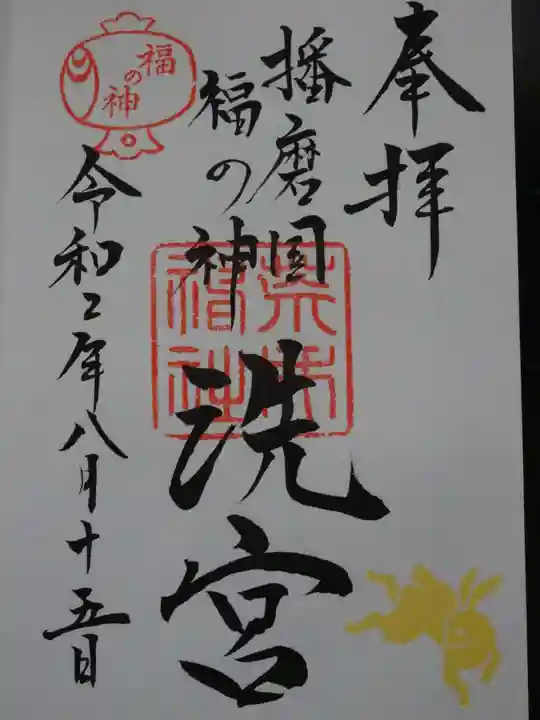 奉拝
播磨国
福の神
洗宮
令和二年八月十五日
福の
神